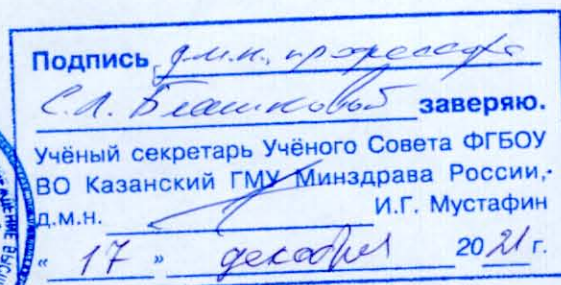 Подпись д.м.н., профессора
С.Л. Блашковой заверяю.
Учёный секретарь Учёного Совета ФГБОУ
ВО Казанский ГМУ Минздрава России,
д.м.н. И.Г. Мустафин
« 17 » декабря 2021 г.